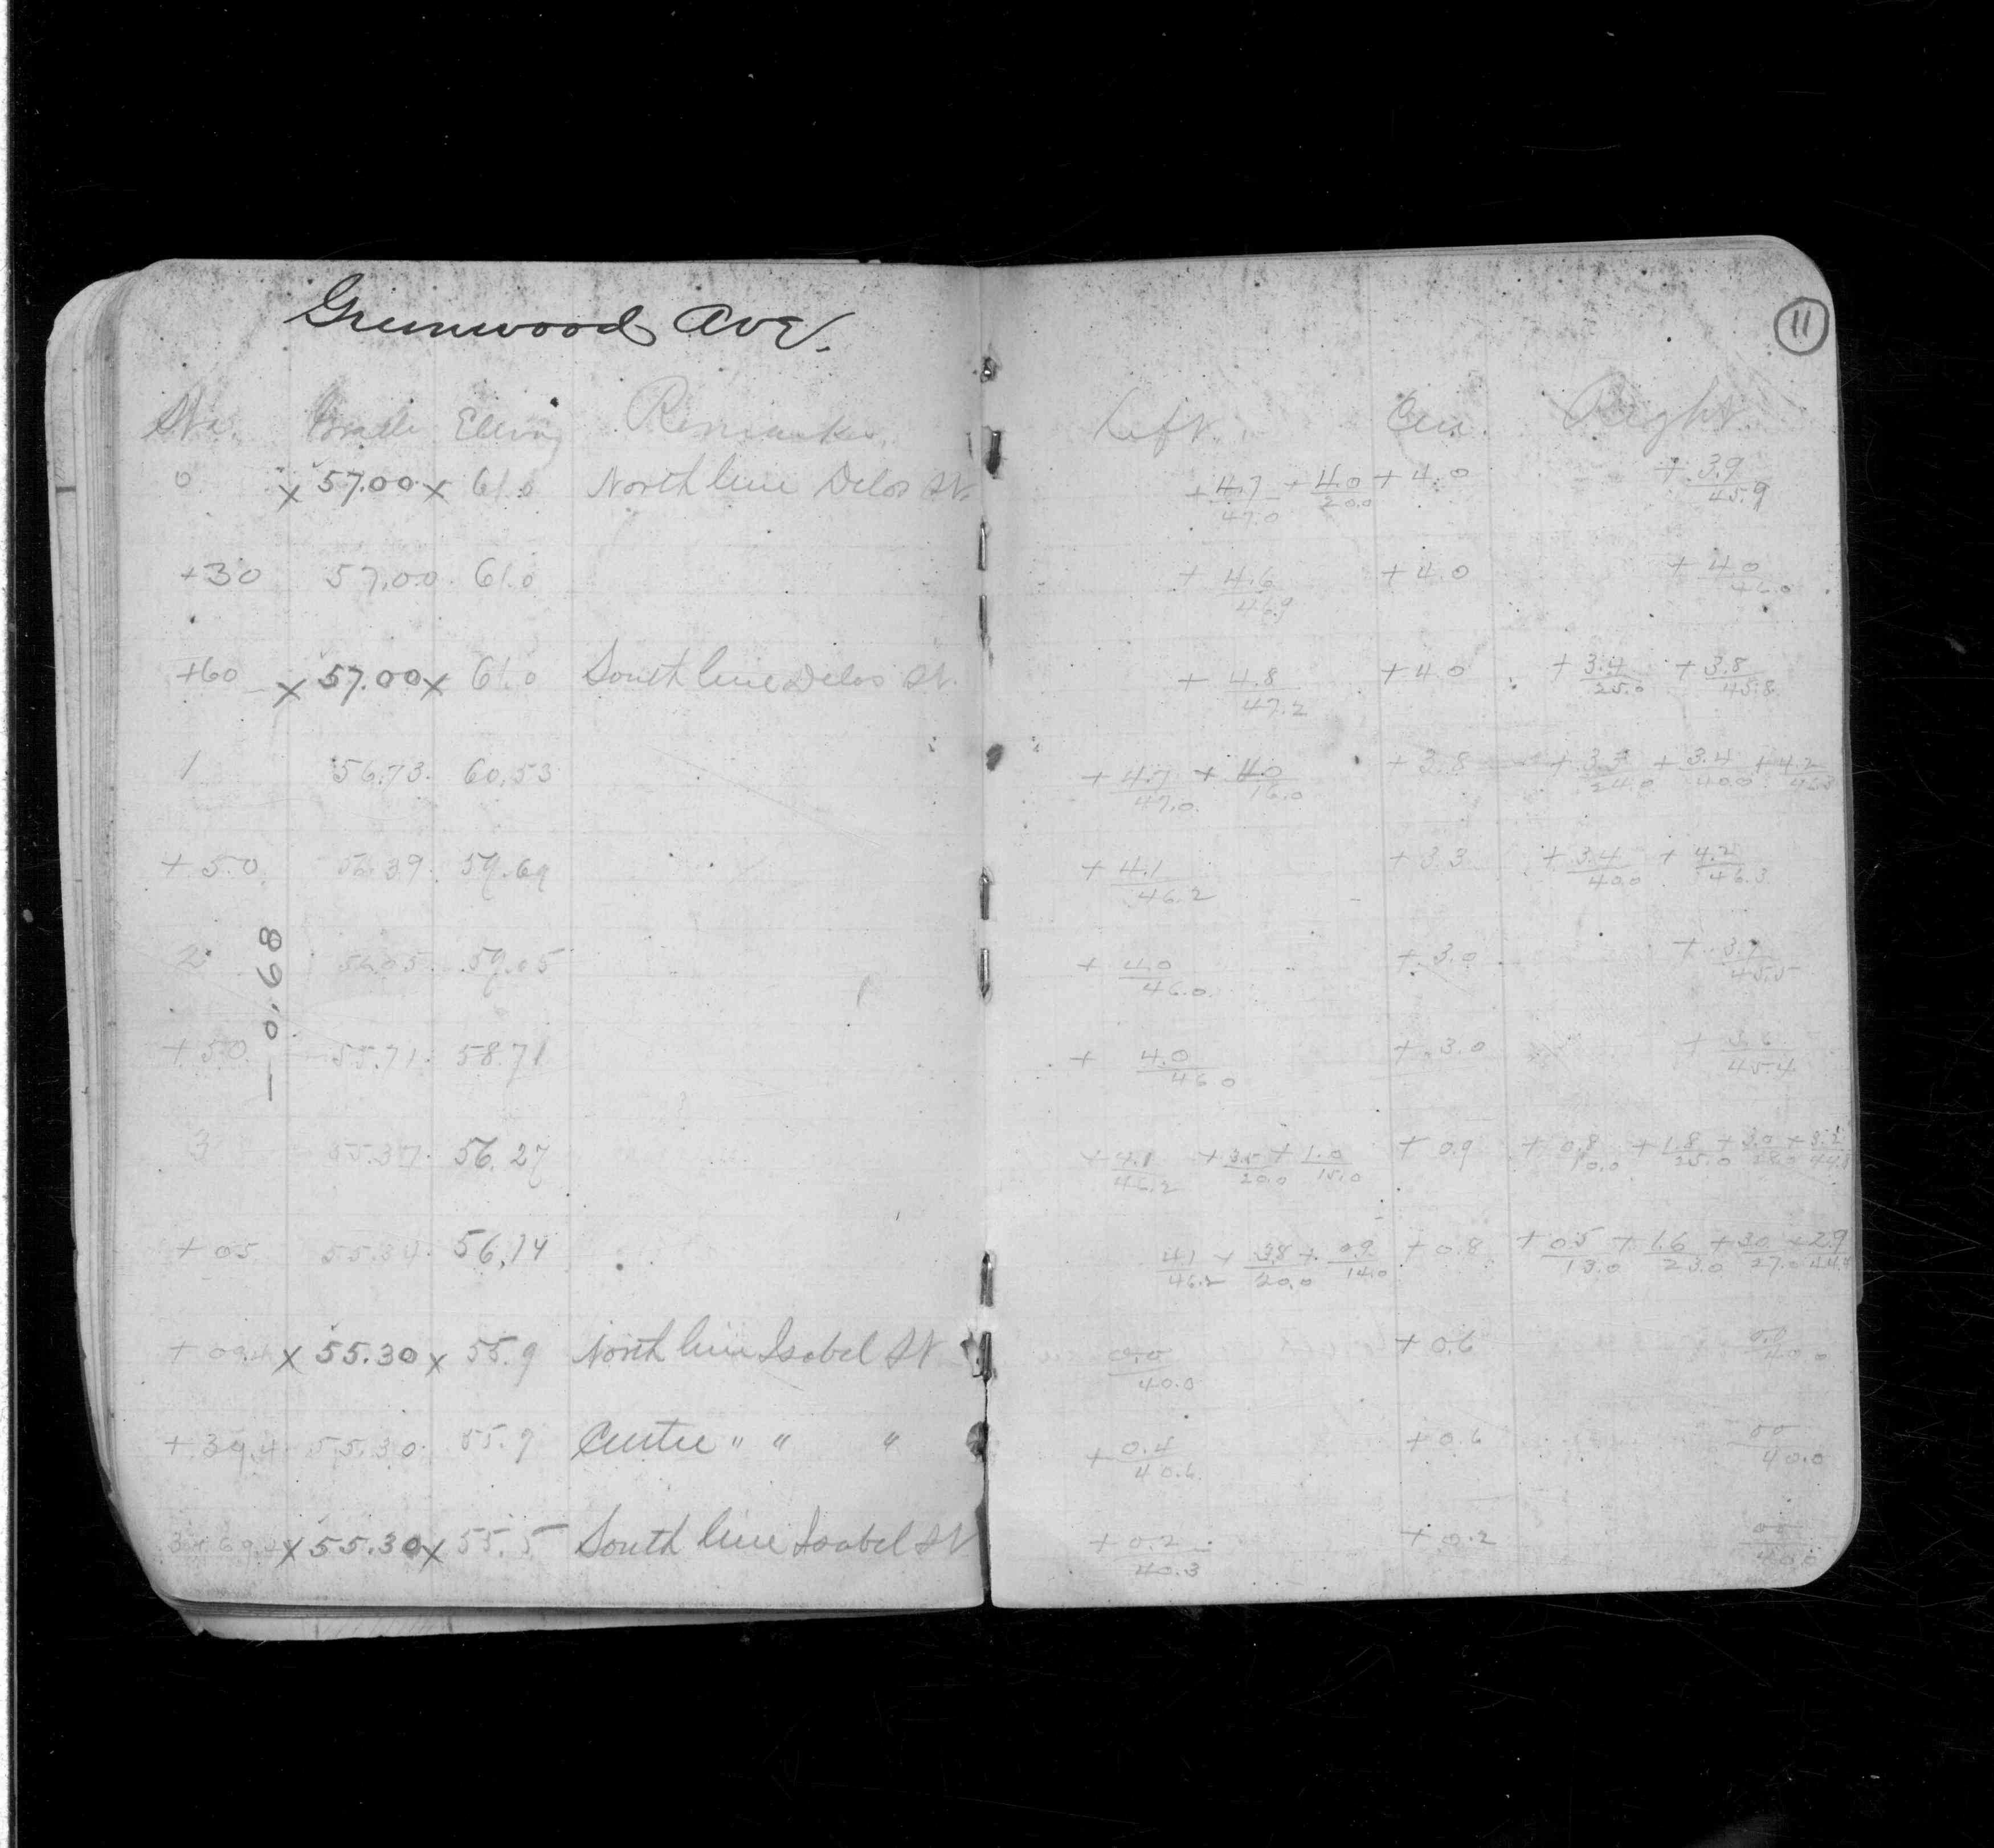 Greenwood Ave.
11
Sta. Grade Elev. Remarks. Left. Cen. Right.
0 x 57.00 x 61.0 North line Delos St. + 4.7/47.0 + 4.0/20.0 + 4.0 + 3.9/45.9
+30 57.00 61.0 + 4.6/46.9 + 4.0 + 4.0/46.0
+60 x 57.00 x 61.0 South line Delos St. + 4.8/47.2 + 4.0 + 3.4/25.0 + 3.8/45.8
1 56.73 60.53 + 4.7/47.0 + 4.0/16.0 + 3.8 + 24.0 + 3.4/40.0 + 4.2/46.3
+50 56.39 59.69 + 4.1/46.2 + 3.3 + 3.4/40.0 + 4.2/46.3
2 56.05 59.05 + 4.0/46.0 + 3.0 + 3.7/45.5
— 0.68
+50 55.71 58.71 + 4.0/46.0 + 3.0 + 3.6/45.4
3 55.37 56.27 + 4.1/46.2 + 3.5/20.0 + 1.0/15.0 + 0.9 + 0.8/10.0 + 1.8/25.0 + 3.0 +
+05 55.34 56.14 4.1/46.2 + 3.8/20.0 + 0.9/14.0 + 0.8 + 0.5/13.0 + 1.6/23.0 + 3.0/27.0 + 2.9
+09.4 x 55.30 x 55.9 North line Isabel St 0.0/40.0 + 0.6 0.0/40.0
+39.4 55.30 55.9 Center " " " + 0.4/40.6 + 0.6 00/40.0
3+69.4 x 55.30 x 55.5 South line Isabel St + 0.2/40.3 + 0.2 00/40.0